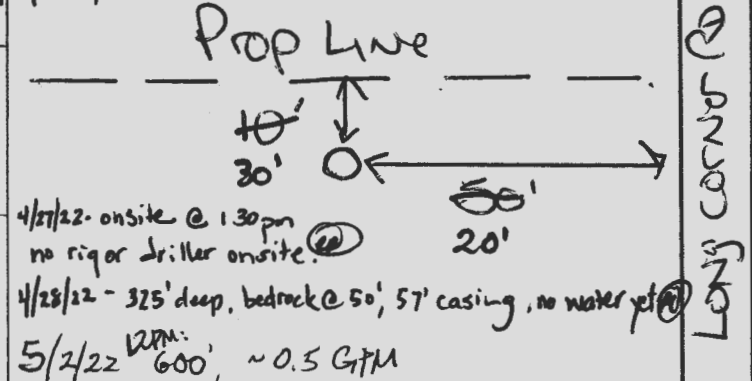 Prop Line
10'
30'
50'
20'
4/27/22 - onsite @ 1:30pm
no rig or driller onsite.
4/28/22 - 325' deep, bedrock @ 50', 57' casing, no water yet
5/2/22 12PM: 600', ~0.5 GPM